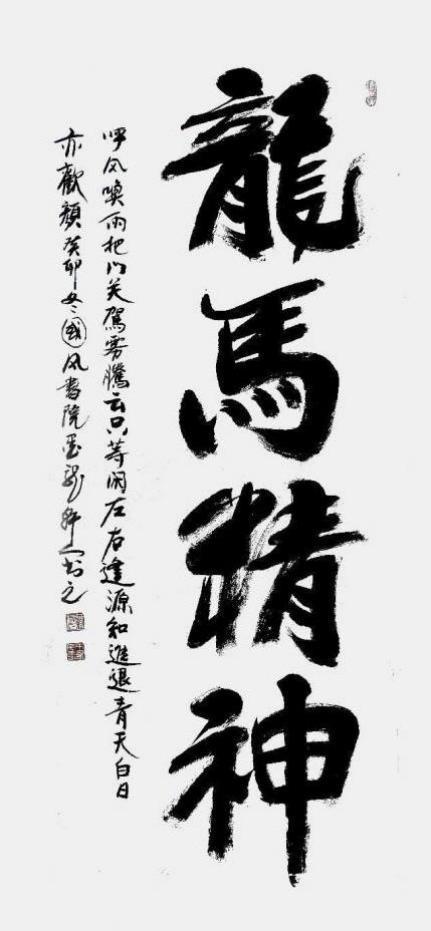 龍馬精神
呼风喚雨把门关駕雾騰云只等闲左右逢源知進退青天白日
亦歡顏癸卯冬國风書院墨龙轩人书之